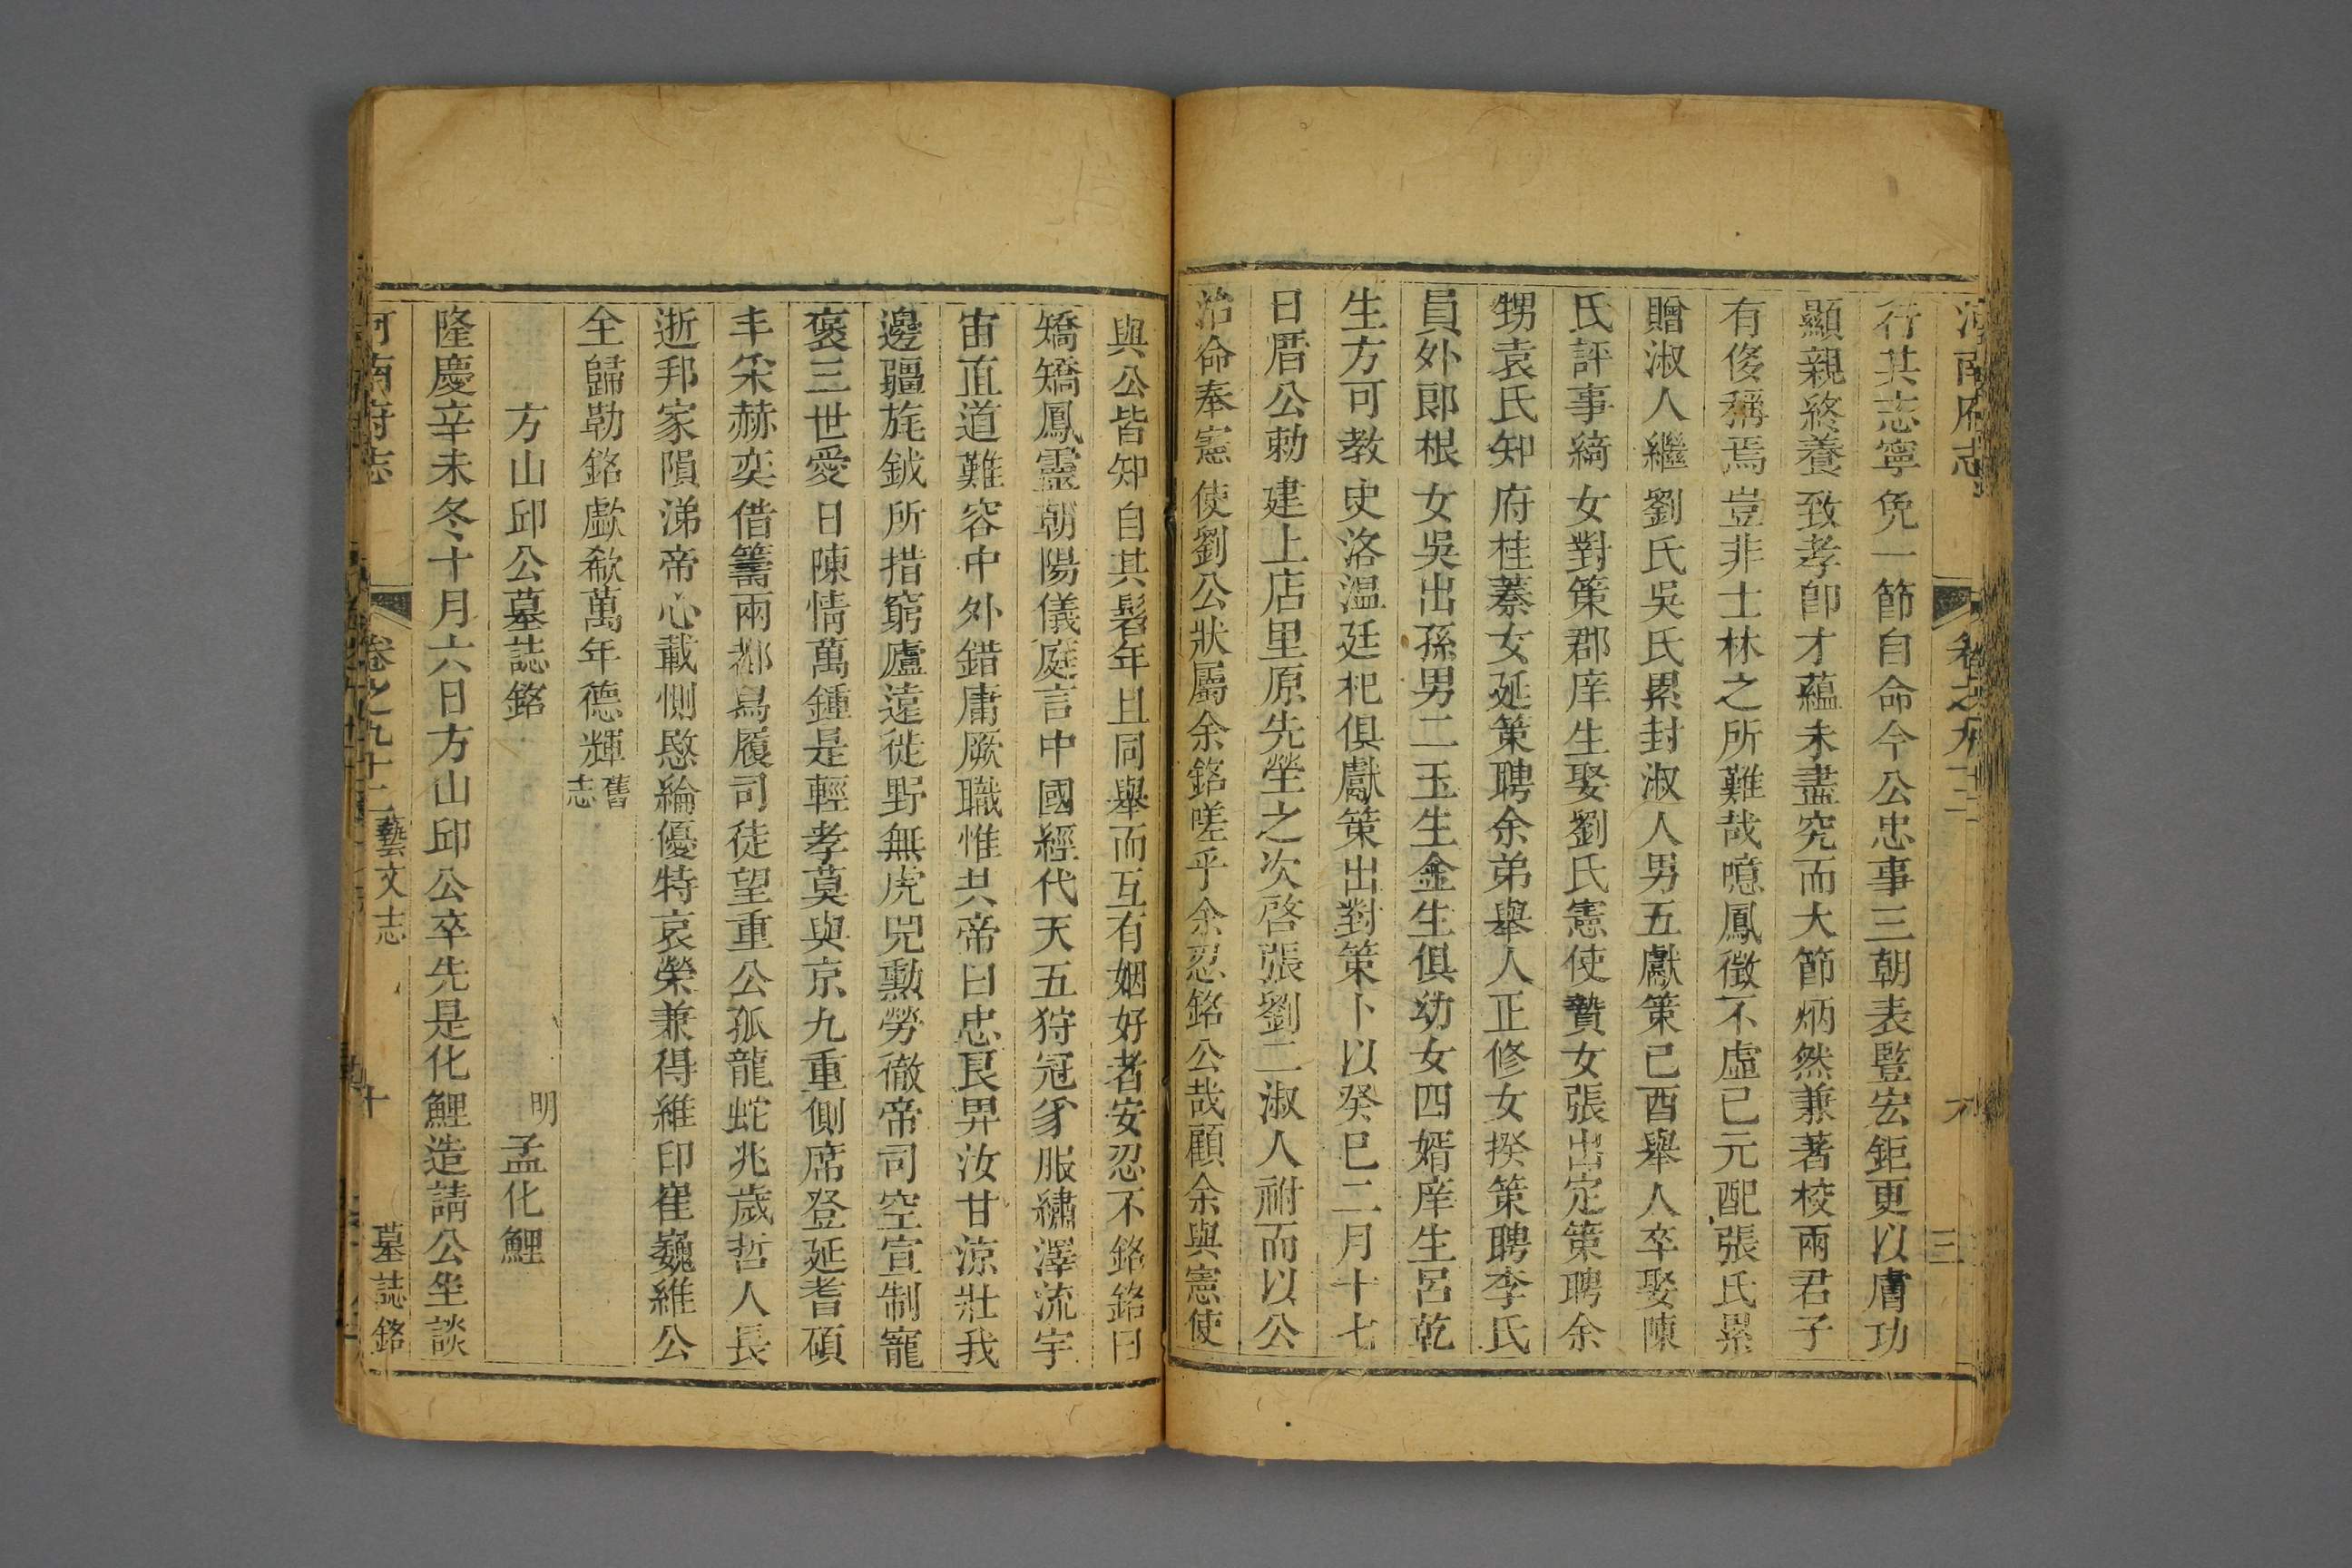 河南府志 卷之九十二
行其志寧免一節自命今公忠事三朝表豎宏鉅更以膚功
顯親終養致孝卽才蘊未盡究而大節炳然兼著校兩君子
有俊稱焉豈非士林之所難哉噫鳳徵不虛已元配張氏累
贈淑人繼劉氏吳氏累封淑人男五獻策己酉舉人卒娶陳
氏評事綺女對策郡庠生娶劉氏憲使贄女張出定策聘余
甥袁氏知府桂蓁女延策聘余弟舉人正修女揆策聘李氏
員外郎根女吳出孫男二玉生金生俱幼女四婿庠生呂乾
生方可教史洛溫廷杞俱獻策出對策卜以癸巳二月十七
日厝公勅建上店里原先塋之次啓張劉二淑人祔而以公
治命奉憲使劉公狀屬余銘嗟乎余忍銘公哉顧余與憲使
與公皆知自其髫年且同舉而互有姻好者安忍不銘銘曰
矯矯鳳靈朝陽儀庭言中國經代天五狩冠豸服繡澤流宇
宙直道難容中外錯庸厥職惟共帝曰忠良畀汝甘涼壯我
邊疆旄鉞所措窮廬遠徙野無虎兕勳勞徹帝司空宣制寵
褒三世愛日陳情萬鍾是輕孝莫與京九重側席登延耆碩
丰采赫奕借籌兩都舄履司徒望重公孤龍蛇兆歲哲人長
逝邦家隕涕帝心載惻愍綸優特哀榮兼得維邙崔巍維公
全歸勒銘歔欷萬年德輝 舊志
方山邱公墓誌銘
明 孟化鯉
隆慶辛未冬十月六日方山邱公卒先是化鯉造請公坐談
河南府志 卷之九十二 藝文志 十 墓誌銘